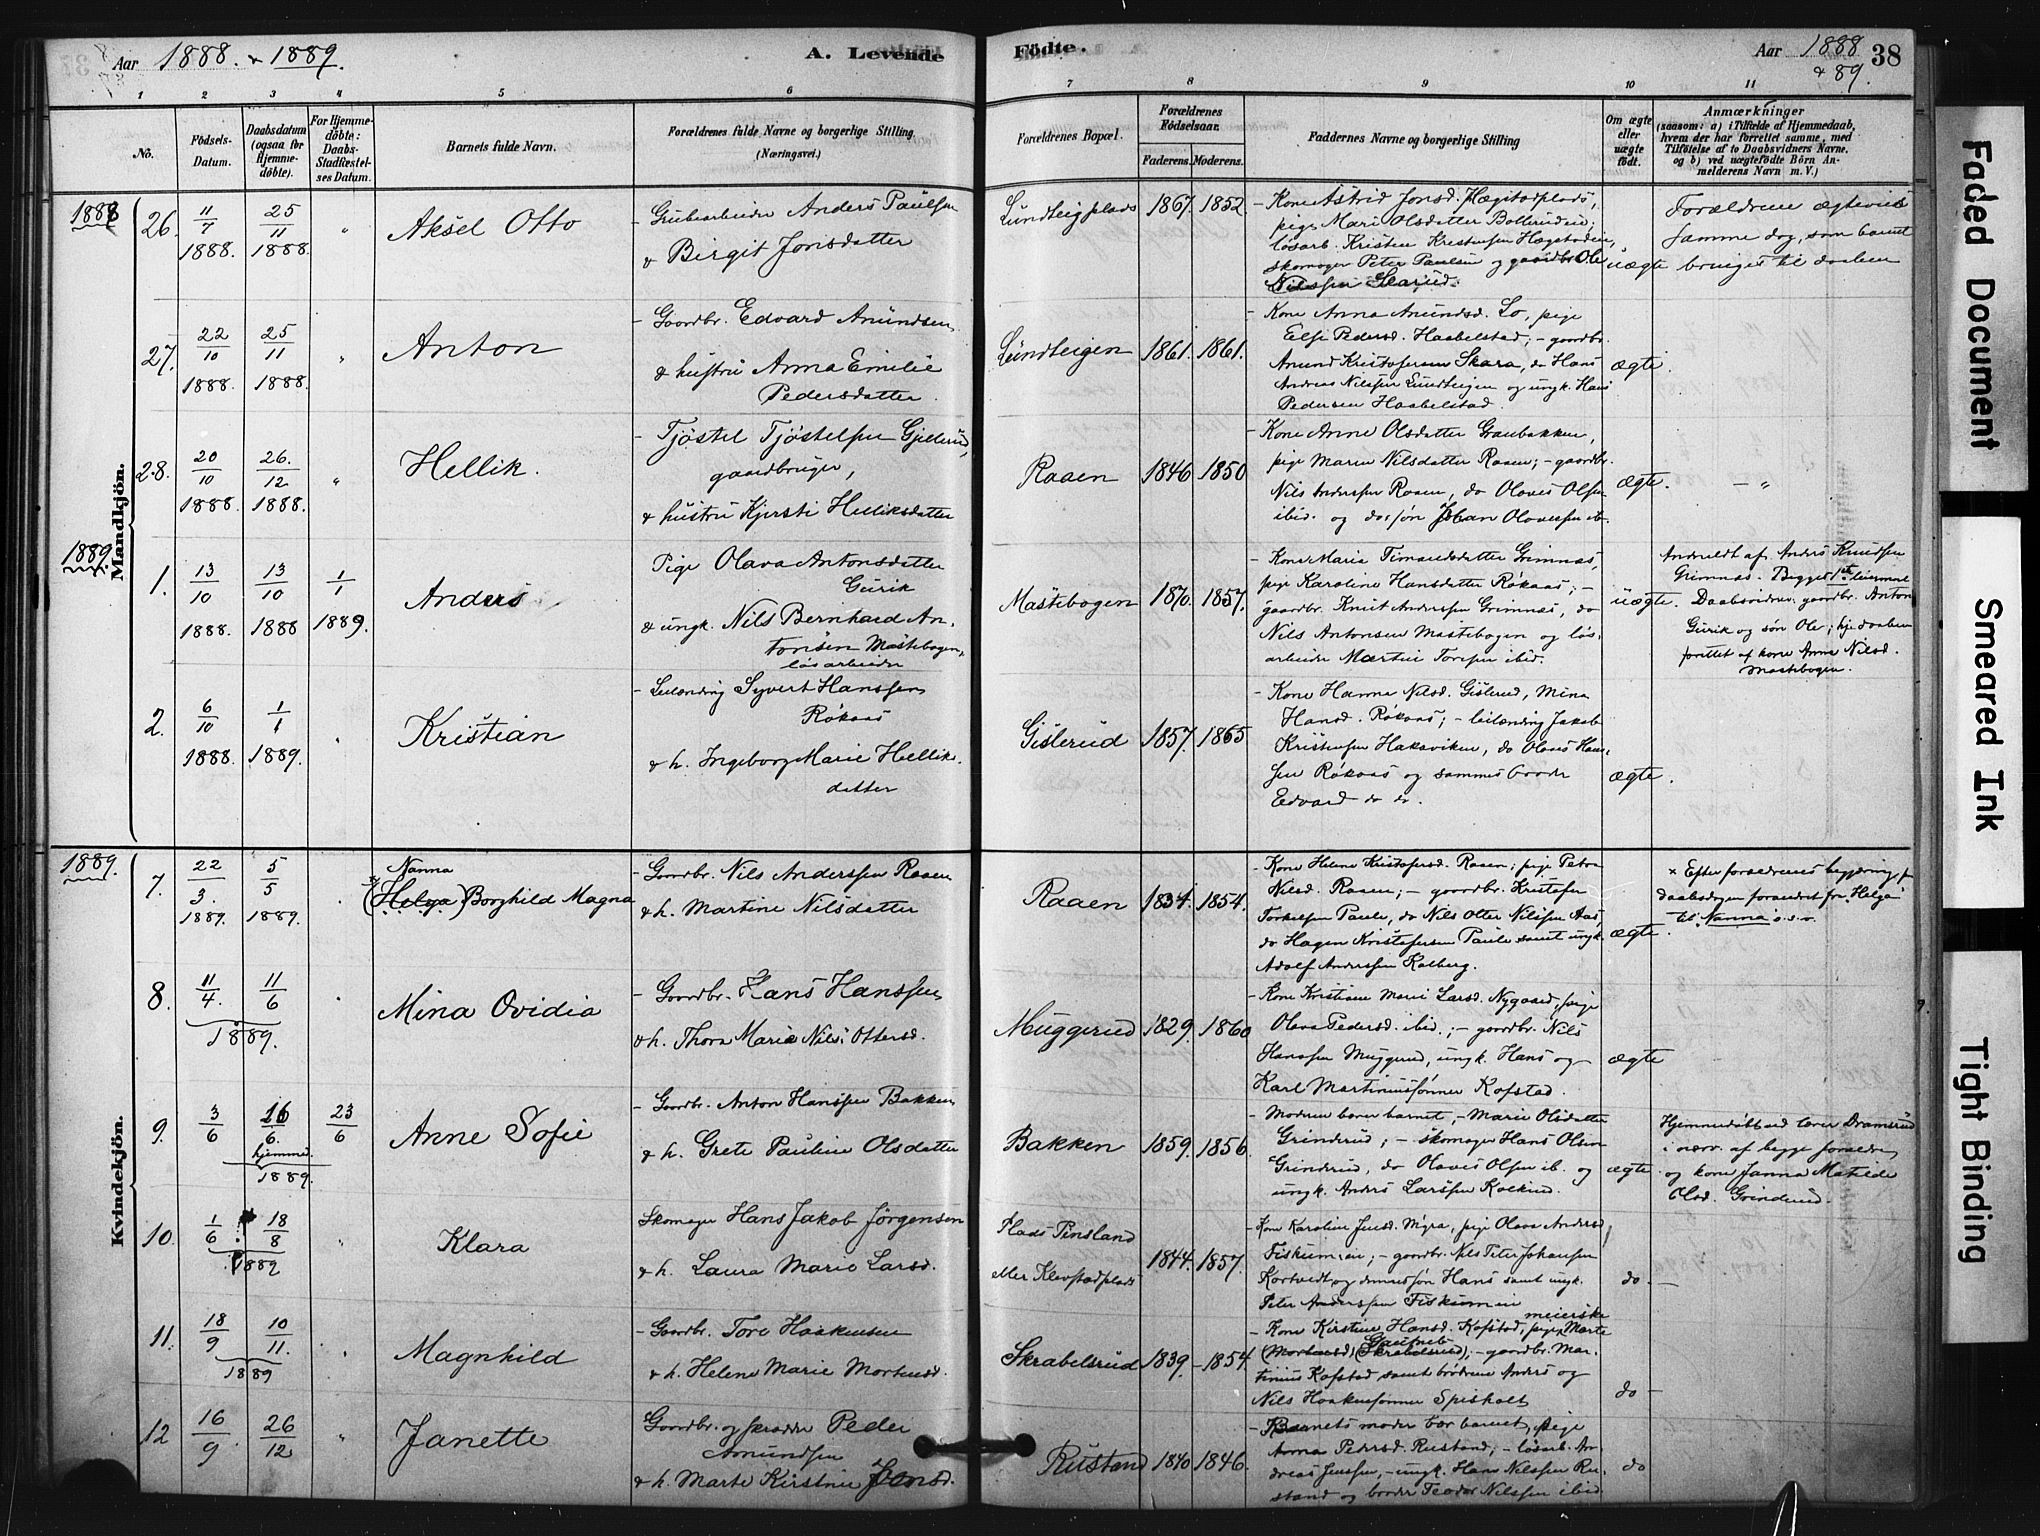 Aar 1888. & 1889. A. Levende
Födte. Aar 1888 & 89. 38
1 2 3 4 5 6 7 8 9 10 11
No.
Födsels-Datum.
Daabsdatum (ogsaa for Hjemme-döbte).
For Hjemme-döbte: Daabs-Stadfæstel-ses Datum.
Barnets fulde Navn.
Forældrenes fulde Navne og borgerlige Stilling.
(Næringsvei.)
Forældrenes Bopæl.
Forældrenes Födselsaar.
Faderens. Moderens.
Faddernes Navne og borgerlige Stilling
Om ægte eller uægte födt.
Anmærkninger
(saasom: a) i Tilfælde af Hjemmedaab,
hvem der har forrettet samme, med
Tilföielse af to Daabsvidners Navne.
og b) ved uægtefödte Börn An-
melderens Navn m. V.)
Mandkjön.
1888
26. 11/7 1888. 25/11 1888. " Aksel Otto
Grubearbeider Anders Paulsen
& Birgit Jonsdatter
Lundteigplads 1867. 1852.
- Kone Astrid Jonsd. Hægstadplads,
pige Mari Olsdatter Bollerudeie;
løsarb. Kristen Kristensen Hægstadeie,
skomager Peter Paulsen og gaardbr. Ole
Nilssen
uægte
Forældrene ægteviet
samme dag, som barnet
bringes til daaben
27. 22/10 1888. 25/11 1888. " Anton
- Gaardbr. Edvard Amundsen
& hustru Anna Emilie
Pedersdatter.
Lundteigen 1861. 1861.
- Kone Anna Amundsd. Lo, pige
Else Pedersd. Haabelstad; - gaardbr.
Amund Kristofersen Skara, do Hans
Andreas Nilssen Lundteigen og ungk. Hans
Pedersen Haabelstad.
ægte.
28. 20/10 1888. 26./12 1888. " Hellik.
- Tjøstel Tjøstelsen Gjellerud,
gaardbruger,
& hustru Kjersti Helliksdatter
Raaen 1846 1850
- Kone Anne Olsdatter Graubakken,
pige Maren Nilsdatter Raaen; - gaardbr.
Nils Anderssen Raaen, do Olaves Olsen
ibid. og do. søn Johan Olavessen ib.
ægte. - "
1889.
1. 13/10 1888. 13/10 1888 1/1 1889. Anders
Pige Olava Antonsdatter
Gurik
& ungk. Nils Bernhard An-
tonsen Mastebogen,
løsarbeider
Mastebogen 1870. 1857.
- Kone Maria Timandsdatter Grimnæs,
pige Karoline Hansdatter Røkaas; -
gaardbr. Knut Anderssen Grimnæs, do
Nils Antonsen Mastebogen og løs-
arbeider Martin Toresen ibid.
uægte.
Anmeldt af Anders Knudsen
Grimnæs. Begges 1ste leiermaal
Daabsvidner gaardbr. Anton
Gurik og søn Ole; hjedaaben
forrettet af kone Anne Nilsd.
Mastebogen.
2. 6/10 1888. 1/1 1889. " Kristian
- Leilænding Syvert Hanssen
Røkaas
& h. Ingeborg Marie Helliks-
datter
Gislerud 1857. 1865
- Kone Hanna Nilsd. Gislerud, Mina
Hansd. Røkaas; - leilænding Jakob
Kristensen Hakaviken, do Olaus Han-
sen Røkaas og sammes broder
Edvard do do.
ægte.
Kvindekjön.
1889.
7. 22/3. 1889. 5/5 1889. " Nanna
x (Helga) Borghild Magna
- Gaardbr. Nils Anderssen Raaen
& h. Martine Nilsdatter
Raaen 1834. 1854.
- Kone Helene Kristofersd. Raaen; pige Petra
Nilsd. Raaen; - gaardbr. Kristofer
Torkelsen Paule, do Nils Otter Nilssen Aas,
do Hagen Kristofersen Paule samt ungk.
Adolf Anderssen Kolberg.
ægte.
x Efter forældrenes begjæring,
daabsdagen forandret fra "Helga"
til "Nanna" o. s. v.
8. 11/4. 11/6 1889. " Mina Ovidia
- Gaardbr. Hans Hanssen
& h. Thora Maria Nils Ottersd.
Muggerud 1829. 1860
- Kone Kristiane Marie Larsd. Nygaard, pige
Olava Pedersd. ibid.; - gaardbr. Nils
Hanssen Muggerud, ungk. Hans og
Karl Martiniussønner Kofstad.
ægte
9. 3/6 16/6. hjemme 1889. 23/6 Anne Sofie
- Gaardbr. Anton Hanssen Bakken
& h. Grete Pauline Olsdatter
Bakken 1859. 1856.
- Moderen bærer barnet, - Marie Olsdatter
Grinderud; - skomager Hans Olsen
Grinderud, do Olaves Olsen ib. og
ungk. Anders Larssen
ægte.
Hjemmedøbt ved lærer Dramsrud
i nærv. af begge forældre,
og kone Janna Matilde
Olsd. Grinderud.
10. 1/6. 18/8 1889 " Klara
Skomager Hans Jakob Jørgensen
& h. Laura Marie Larsd.
Plads Pensland
eller Klevstadplads 1844. 1857.
- Kone Karoline Jensd. Myra, pige Olava Andersd.
Fiskumeie; - gaardbr. Nils Peter Johansen
Kortvedt og dennes søn Hans samt ungk.
Peter Anderssen Fiskumeie
do. -
11. 18/9 10/11. 1889 " Magnhild
- Gaardbr. Tore Haakensen
& h. Helene Marie Mortensd.
Skrabelsrud 1839. - 1854.
- Kone Kirstine Hansd. Kofstad, pige, meierske Marte
(Mortensd.) (Skrabelsrud), - gaardbr. Mar-
tinius Kofstad samt brødrene Anders og
Nils Haakensønner Spisholt
do -
12 16/9. 26/12 " Janette
Gaardbr. og skrædder Peder
Amundsen
& h. Marte Kirstine Jensd.
Rustand 1840 1846.
- Barnets moder bær barnet, pige
Anna Pedersd. Rustand; - løsarb. An-
dreas Jenssen, - ungk. Hans Nilssen Ru-
stand og broder Teodor Nilssen ibid.
do
Faded Document
Smeared Ink
Tight Binding